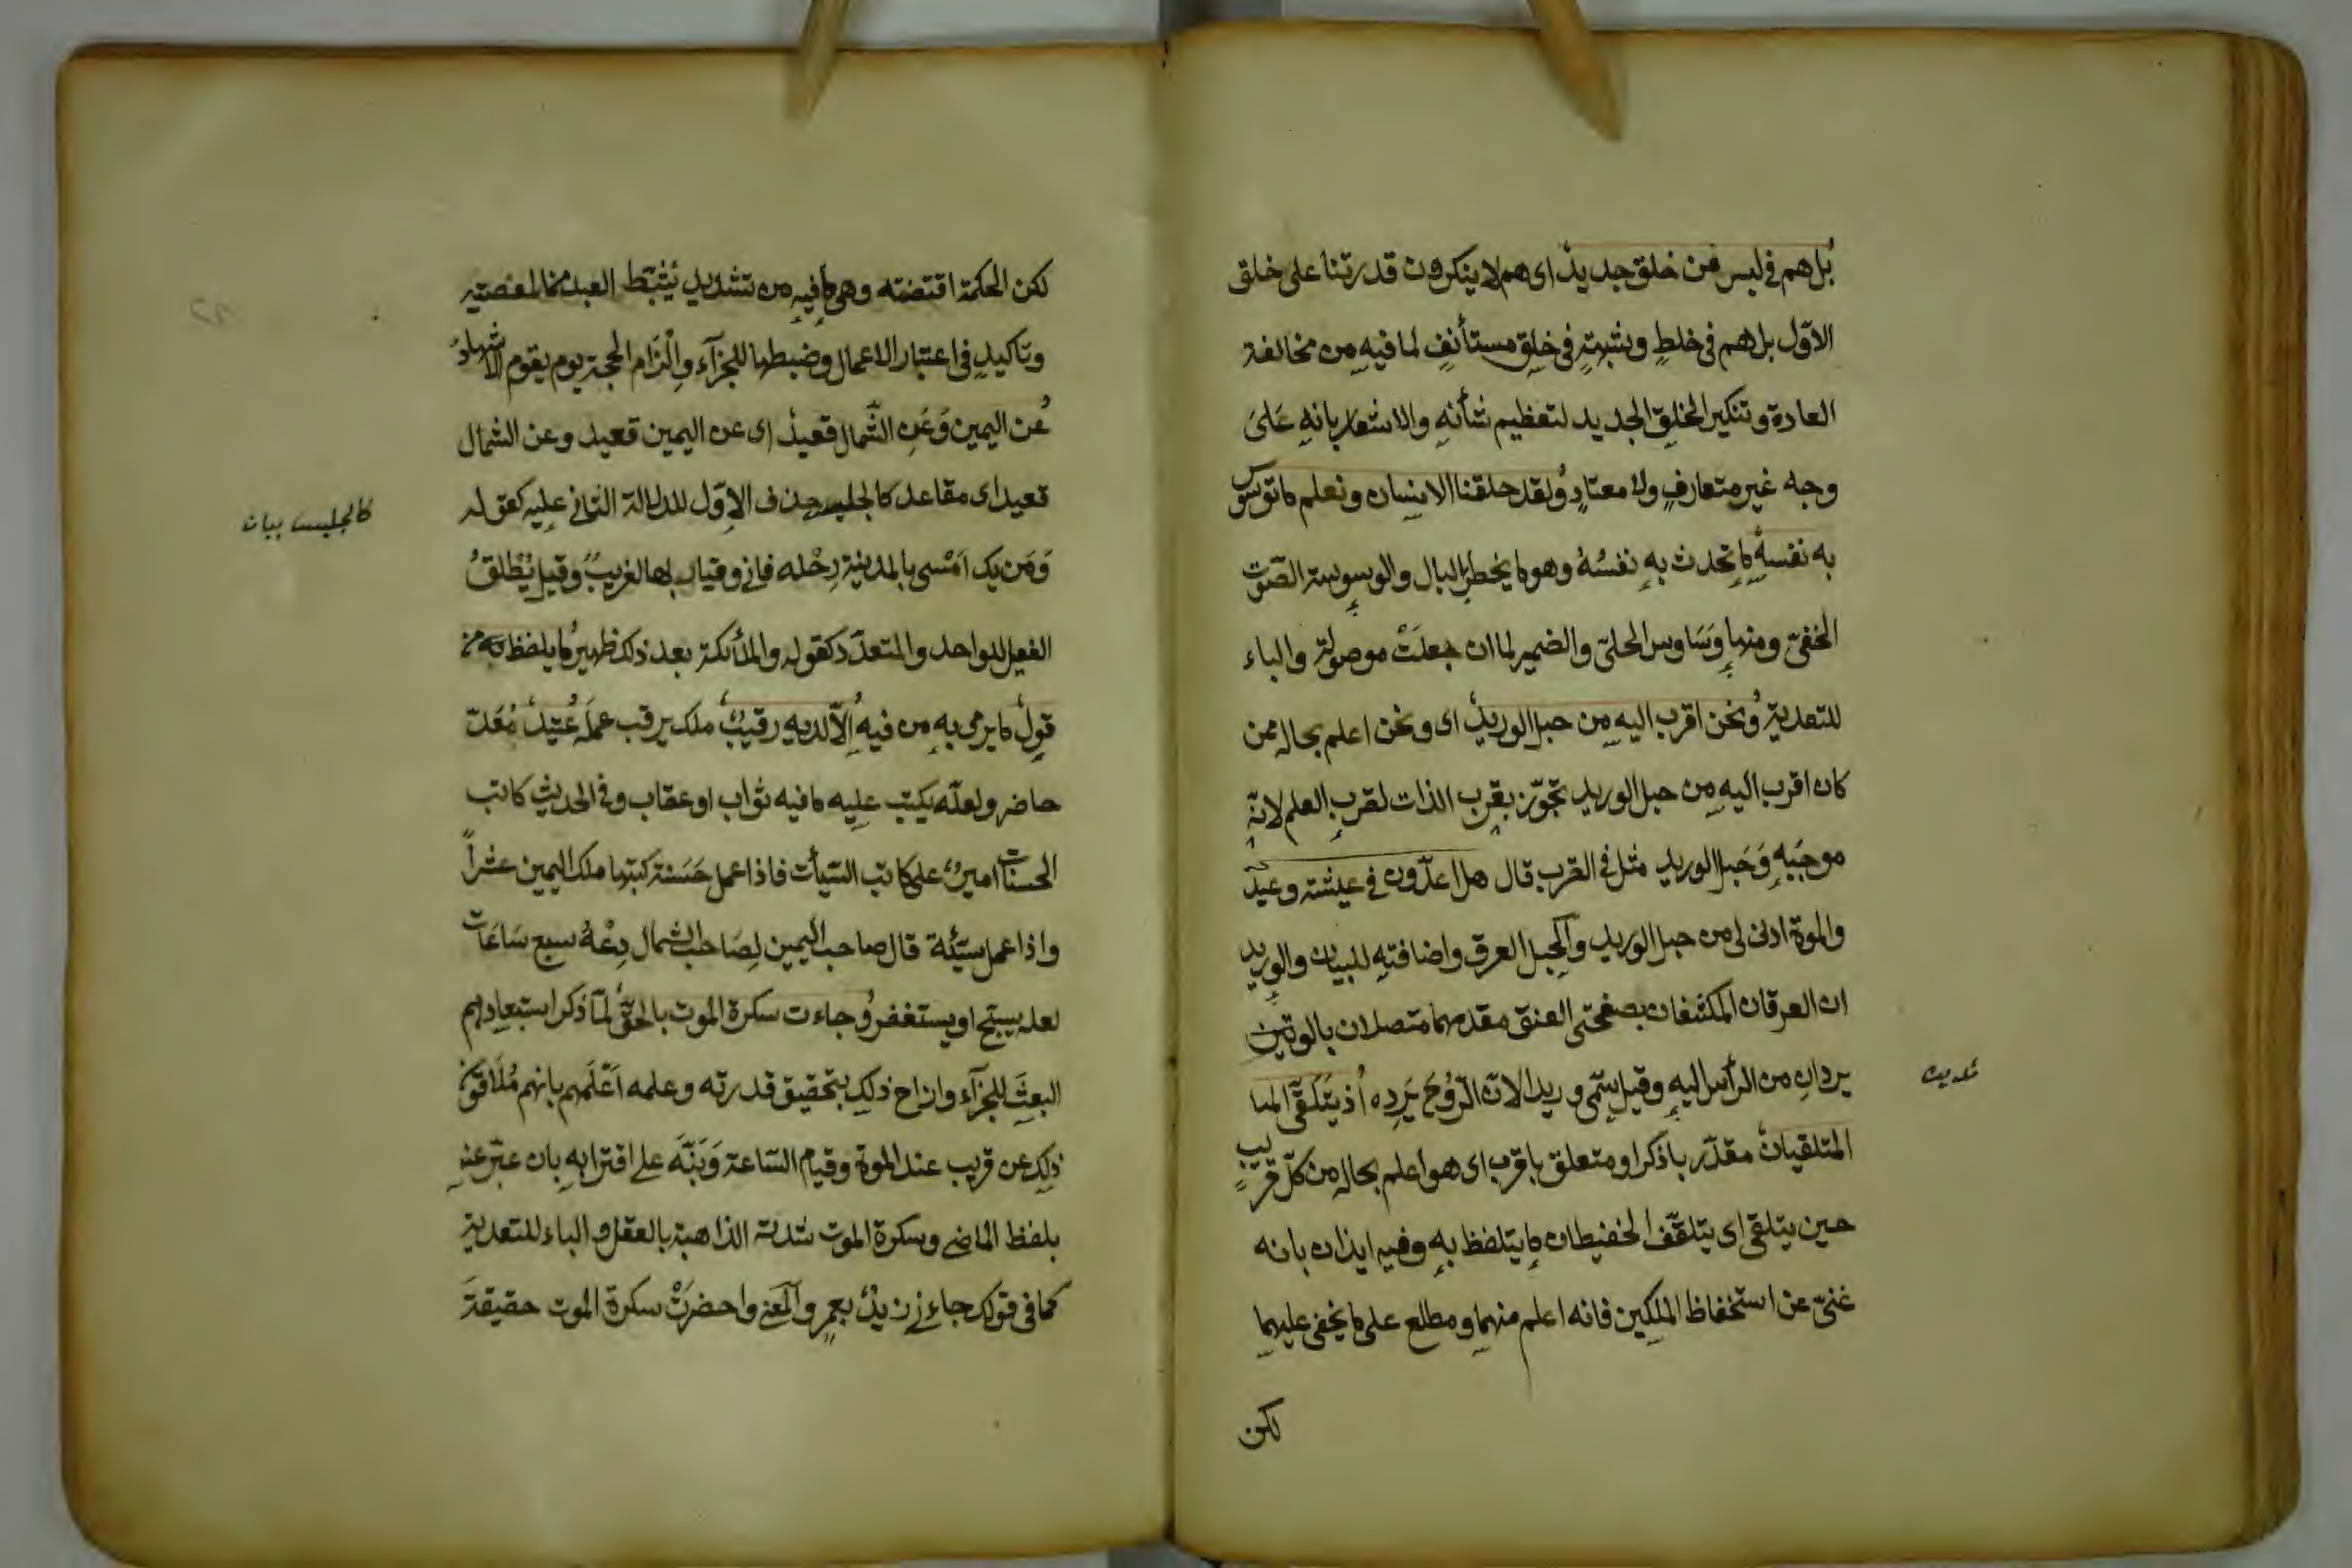 بل هم في لبس من خلق جديد اى هم لا ينكرون قدرتنا على خلق
الاوّل بل هم فى خلطٍ وشبهةٍ فى خلقٍ مستأنفٍ لما فيهِ من مخالفة
العادة وتنكير الخلقِ الجديد لتعظيم شأنهِ والاشعار بانهِ عَلىَ
وجه غير متعارفٍ ولا معتادٍ ولقد خلقنا الانسان ونعلم ما توسوس
به نفسه ما تحدث بهِ نفسُهُ وهو ما يخطر بالبال والوسوسة الصّوت
الخفىّ ومنها وَسَاوس الحلىّ والضمير لما ان جعلَتْ موصولة والباء
للتعدية ونحن اقرب اليهِ من حبل الوريد اى ونحن اعلم بحاله ممن
كان اقرب اليهِ من حبل الوريد تجوّز بقرب الذات لقرب العلم لانهّ
موجَبِهِ وَحَبل الوريد مثل فى القرب قال هل اعدّون فى عيشته وعيد
والموة ادنى لى من حبل الوريد والحبل العرق واضافته للبيان والوريد
ان العرقان المكتنفان بصفحتى العنق مقدمهما متصلان بالوتين
يردانِ من الرأس اليهِ وقيل سمّى وريدا لانّ الرّوُحَ يَرِده اذ يَتَلقَّى المتا
المتلقيان مقدّر باذكر او متعلق باقرب اى هو اعلم بحاله من كلّ قريبٍ
حين يتلقى اى يتلقّف الحفيظان ما يتلفظ بهِ وفيه ايذان بانه
غنىّ عن استحفاظ الملكين فانه اعلم منهما ومطلع على ما يخفى عليهما
لكن
لكن الحكمة اقتضته وهى ما فيهِ من تشديد يُثبّط العبد عن المعصية
وتاكيدٍ فى اعتبار الاعمال وضبطها للجزآء وِالْزَام الحجة يوم يقوم الاشهاد
عن اليمين وَعَنِ الشّمال قعيد اى عن اليمين قعيد وعن الشمال
قعيد اى مقاعد كالجليس حذف الاوّل لدلالة الثانى عليه كقوله
كالجليس بيان
وَمَن يك اَمْسى بالمدينة رِحْله فانى وقيار بها لغريبٌ وقيل يُطْلقُ
الفعيل للواحد والمتعدّد كقوله والملائكة بعد ذلك ظهير ما يلفظ به من
قول ما يرمى بهِ من فيهِ الاّ لديه رقيبٌ ملك يرقب عملَه عُتيد مُعَدّ
حاضر ولعلّه يكتب عليه ما فيه ثواب او عقاب وفى الحديث كاتب
الحسنات امينٌ على كاتب السّيأت فاذا عمل حَسَنة كتبها ملك اليمين عشراً
واذا عمل سيّئة قال صاحب اليمين لِصَاحب الشمال دِعْهُ سبع سَاعَات
لعله يسبّح او يستغفر وجاءت سكرة الموت بالحقّ لمّا ذكر استبعادهم
البعثَ للجزآء وازاح ذلك بتحقيق قدرته وعلمه اَعْلَمهم بانهم مُلَاقون
ذلِك عن قريب عند الموة وقيام السّاعة وَنبّهَ على اقترابهِ بان عبّر عنه
بلفظ الماضى وسكرة الموت شدته الذاهبة بالعقل والباء للتعدية
كما فى قولك جاءنى زيدٌ بعمرٍ والمعنى واحضرَتْ سكرة الموت حقيقةَ